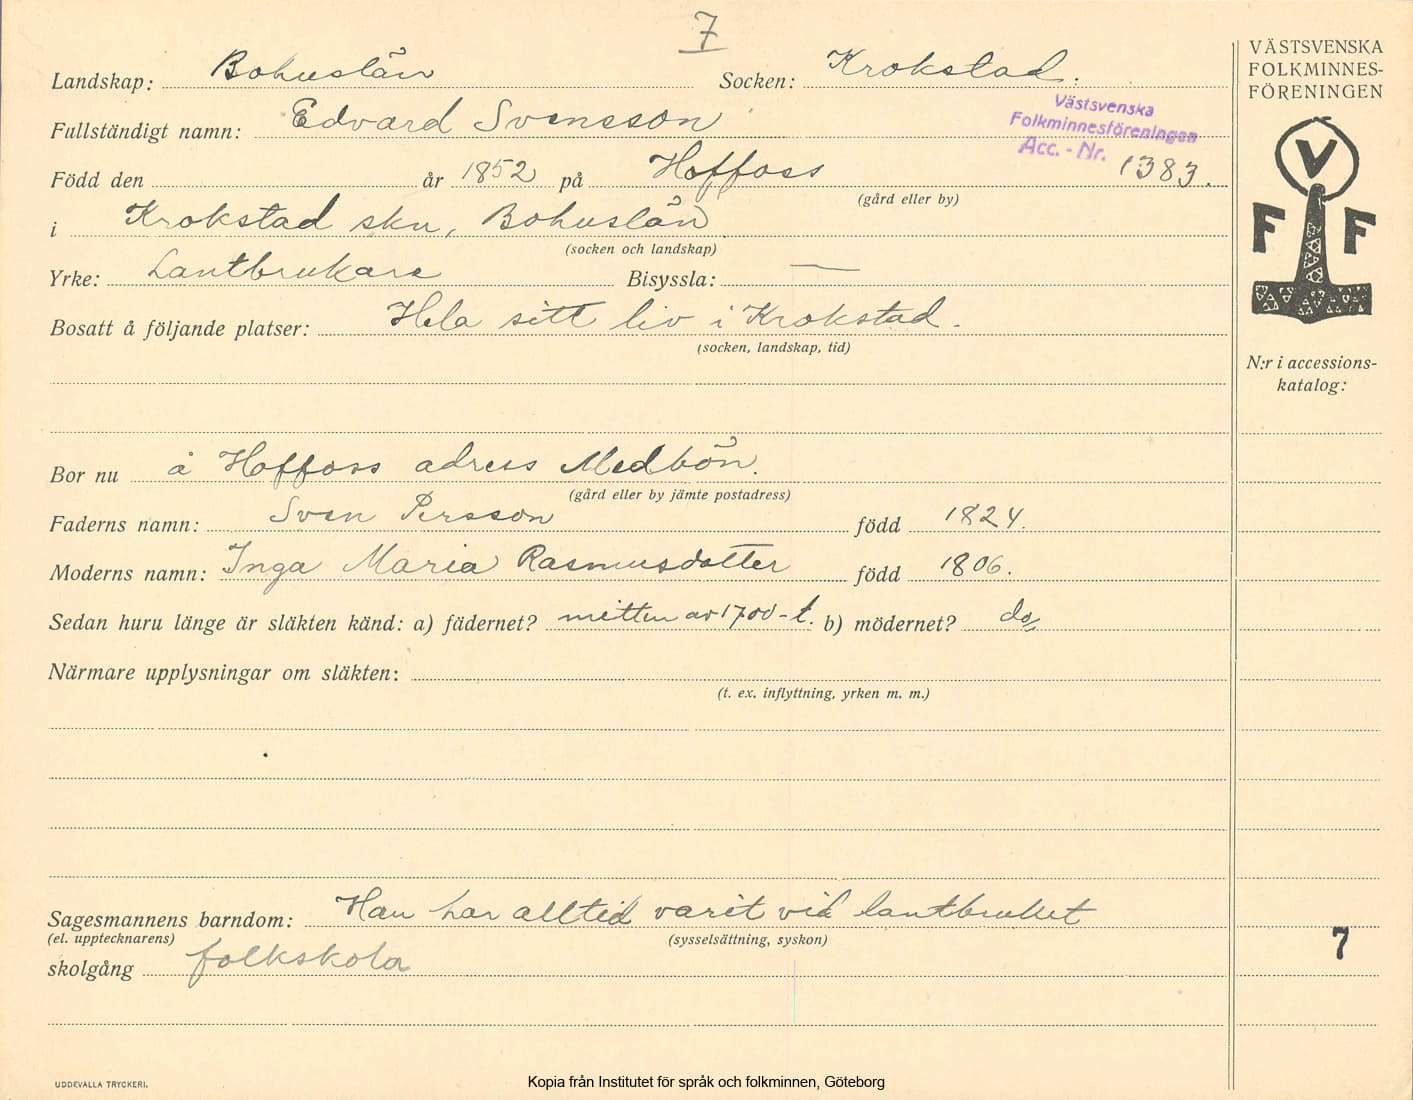 7
Landskap: Bohuslän Socken: Krokstad.
Fullständigt namn: Edvard Svensson
Västsvenska
Folkminnesföreningen
Acc. - Nr. 1383.
Född den år 1852 på Hoffoss
(gård eller by)
i Krokstad skn, Bohuslän
(socken och landskap)
Yrke: Lantbrukare Bisyssla: —
Bosatt å följande platser: Hela sitt liv i Krokstad.
(socken, landskap, tid)
Bor nu å Hoffoss adress Medbön.
(gård eller by jämte postadress)
Faderns namn: Sven Persson född 1824.
Moderns namn: Inga Maria Rasmusdotter född 1806.
Sedan huru länge är släkten känd: a) fädernet? mitten av 1700-t. b) mödernet? do,,
Närmare upplysningar om släkten:
(t. ex. inflyttning, yrken m. m.)
Sagesmannens barndom: Han har alltid varit vid lantbruket
(el. upptecknarens) (sysselsättning, syskon)
skolgång folkskola
UDDEVALLA TRYCKERI.
Kopia från Institutet för språk och folkminnen, Göteborg
VÄSTSVENSKA
FOLKMINNES-
FÖRENINGEN
V
F F
N:r i accessions-
katalog:
7